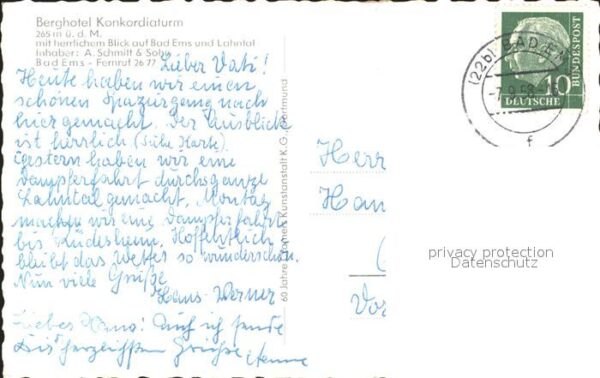 Berghotel Konkordiaturm
265 m ü. d. M.
mit herrlichem Blick auf Bad Ems und Lahntal
Inhaber: A. Schmitt & Sohn
Bad Ems - Fernruf 26 77
Lieber Vati!
Heute haben wir einen
schönen Spaziergang nach
hier gemacht. Der Ausblick
ist herrlich (siehe Karte).
Gestern haben wir eine
Dampferfahrt durchs ganze
Lahntal gemacht. Montag
machen wir eine Dampferfahrt
bis Rüdesheim. Hoffentlich
bleibt das Wetter so wunderschön.
Nun viele Grüße
Hans-Werner
Liebes Hans! Auch ich sende
Dir herzlichste Grüße
60 Jahre Kunstanstalt K.G., Dortmund
Herr
Han
Vor
(22b) BAD EM
-7.9.58
f
10
DEUTSCHE
BUNDESPOST
privacy protection
Datenschutz